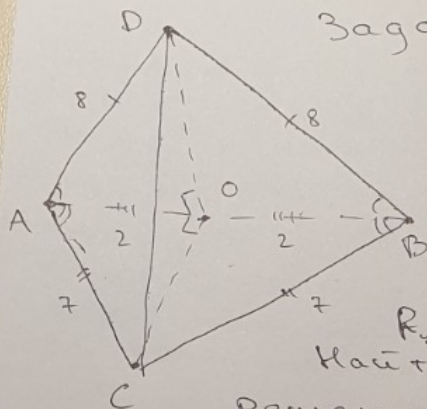 Зада
D
8
8
O
A
2
2
B
7
7
Най
C